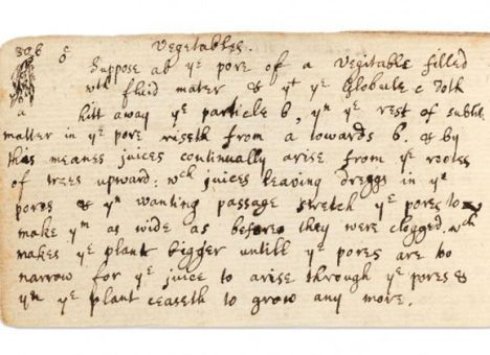 306 c Vegetables.
b Suppose ab yᵉ pore of a Vegitable filled
wᵗʰ fluid mater & yᵗ yᵉ Globule c doth
a hitt away yᵉ particle b, yⁿ yᵉ rest of subtile
matter in yᵉ pore riseth from a towards b. & by
this meanes juices continually arise from yᵉ rootes
of trees upward: wᶜʰ juices leaving dreggs in yᵉ
pores & yⁿ wanting passage stretch yᵉ pores to
make yᵐ as wide as before they were clogged. wᶜʰ
makes yᵉ plant bigger untill yᵉ pores are too
narrow for yᵉ juice to arise through yᵉ pores &
yⁿ yᵉ plant ceaseth to grow any more.